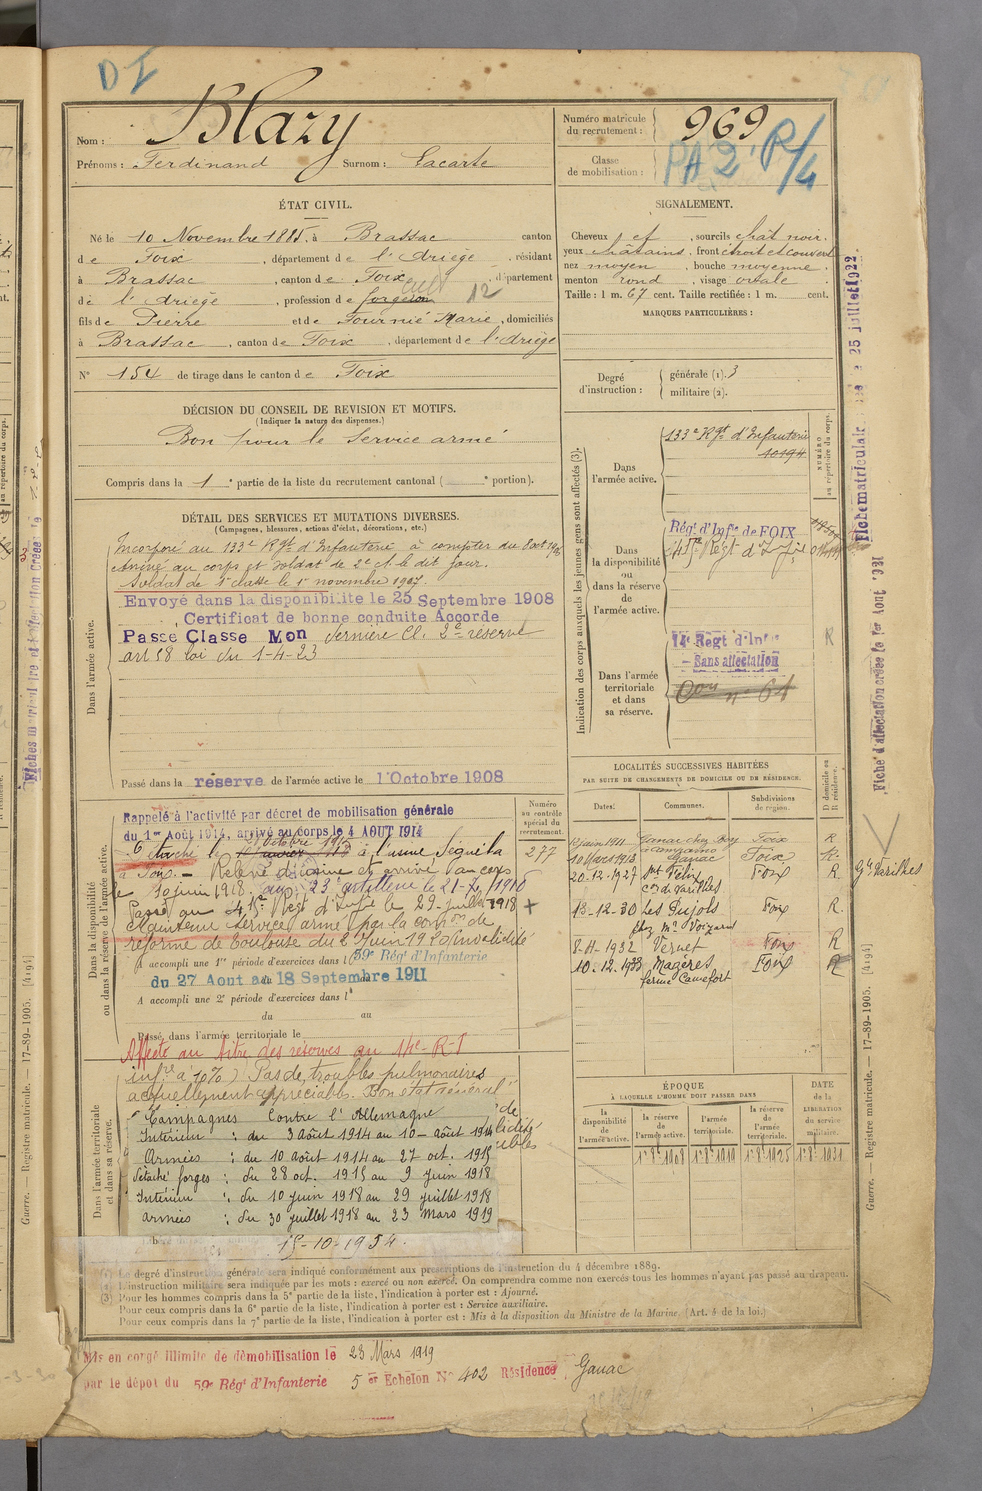 DI
Nom : Blazy
Prénoms : Ferdinand Surnom : Lacarte
Numéro matricule
du recrutement : 969
Classe
de mobilisation : PA 2 R/4
ÉTAT CIVIL.
Né le 10 Novembre 1885, à Brassac canton
de Foix, département de l'Ariège, résidant
à Brassac, canton de Foix, département
de l'Ariège, profession de forgeron cult 12
fils de Pierre et de Fournié Marie, domiciliés
à Brassac, canton de Foix, département de l'Ariège
N° 154 de tirage dans le canton de Foix
SIGNALEMENT.
Cheveux et, sourcils chât noir.
yeux châtains, front étroit et couvert
nez moyen, bouche moyenne,
menton rond, visage ovale
Taille : 1 m. 67 cent. Taille rectifiée : 1 m. cent.
MARQUES PARTICULIÈRES :
Degré
d'instruction : générale (1). 3
militaire (2).
DÉCISION DU CONSEIL DE REVISION ET MOTIFS.
(Indiquer la nature des dispenses.)
Bon pour le Service armé
Compris dans la 1e partie de la liste du recrutement cantonal ( e portion).
DÉTAIL DES SERVICES ET MUTATIONS DIVERSES.
(Campagnes, blessures, actions d'éclat, décorations, etc.)
Dans l'armée active.
Incorporé au 133e Rgt d'Infanterie à compter du 8 oct 1906
Arrivé au corps et soldat de 2e cl. le dit jour.
Soldat de 1e classe le 1er novembre 1907.
Envoyé dans la disponibilité le 25 Septembre 1908
Certificat de bonne conduite Accordé
Passe Classe Mon dernière Cl. 2e réserve
art 58 loi du 1-4-23
Passé dans la réserve de l'armée active le 1 Octobre 1908
Indication des corps auxquels les jeunes gens sont affectés (3).
NUMÉRO
au répertoire du corps.
Dans
l'armée active.
133e Rgt d'Infanterie
10194
Dans
la disponibilité
ou
dans la réserve
de
l'armée active.
Régt d'Infie de FOIX
Dans l'armée
territoriale
et dans
sa réserve.
14e Régt d'Infie
Sans affectation
R
Fiche matriculaire 25 juillet 1922
Fiche d'affectation créée le 1er Aout 1921
LOCALITÉS SUCCESSIVES HABITÉES
PAR SUITE DE CHANGEMENTS DE DOMICILE OU DE RÉSIDENCE.
Dates. Communes. Subdivisions
de région. D domicile ou
R résidence.
12 juin 1911 Ganac Foix R
10 Mars 1913 Ganac Foix R
20-12-1927 St Félix Foix R
Cne de Varilhes
Gd Varilhes
13-12-30 Les Pujols Foix R.
8-11-1932 Vernet Foix R
10.12.1933 Mazères Foix R
ferme Camefort
Dans la disponibilité
ou dans la réserve de l'armée active.
Numéro
au contrôle
spécial du
recrutement.
277
Rappelé à l'activité par décret de mobilisation générale
du 1er Août 1914, arrivé au corps le 4 AOUT 1914
Détaché le Octobre 1915 à l'usine Sequela
à Foix. Relevé d'usine et arrivé au corps
le 10 juin 1918. au 23e artillerie le 21-
Passé au Régt d'Infie le 29 juillet 1918 +
Maintenu Service armé par la comon de
réforme de Toulouse du 2 juin 1920 (invalidité
A accompli une 1re période d'exercices dans le 59e Régt d'Infanterie
du 27 Aout au 18 Septembre 1911
A accompli une 2e période d'exercices dans l
du au
Passé dans l'armée territoriale le
Affecté au titre des réserves au 14e R-I
Dans l'armée territoriale
et dans sa réserve.
infre à 10%) Pas de troubles pulmonaires
actuellement appréciables. Bon état général"
Campagnes Contre l'Allemagne
Intérieur : du 3 Août 1914 au 10 août 1914
Armées : du 10 août 1914 au 27 oct. 1915
Détaché forges : du 28 oct. 1915 au 9 juin 1918
Intérieur : du 10 juin 1918 au 29 juillet 1918
armées : du 30 juillet 1918 au 23 Mars 1919
15-10-1954.
ÉPOQUE
À LAQUELLE L'HOMME DOIT PASSER DANS
DATE
de la
LIBÉRATION
du service
militaire.
la
disponibilité
de
l'armée active.
la réserve
de
l'armée active.
l'armée
territoriale.
la réserve
de
l'armée
territoriale.
1 8bre 1908 1 8bre 1919 1 8bre 1925 1 8bre 1931
(1) Le degré d'instruction générale sera indiqué conformément aux prescriptions de l'instruction du 4 décembre 1889.
(2) L'instruction militaire sera indiquée par les mots : exercé ou non exercé. On comprendra comme non exercés tous les hommes n'ayant pas passé au drapeau.
(3) Pour les hommes compris dans la 5e partie de la liste, l'indication à porter est : Ajourné.
Pour ceux compris dans la 6e partie de la liste, l'indication à porter est : Service auxiliaire.
Pour ceux compris dans la 7e partie de la liste, l'indication à porter est : Mis à la disposition du Ministre de la Marine. (Art. 4 de la loi.)
Mis en congé illimité de démobilisation le 23 Mars 1919
par le dépôt du 59e Régt d'Infanterie 5 er Echelon N° 402 Résidence Ganac
Guerre. — Registre matricule. — 17-89-1905. [4194]
Guerre. — Registre matricule. — 17-89-1905. [4194]